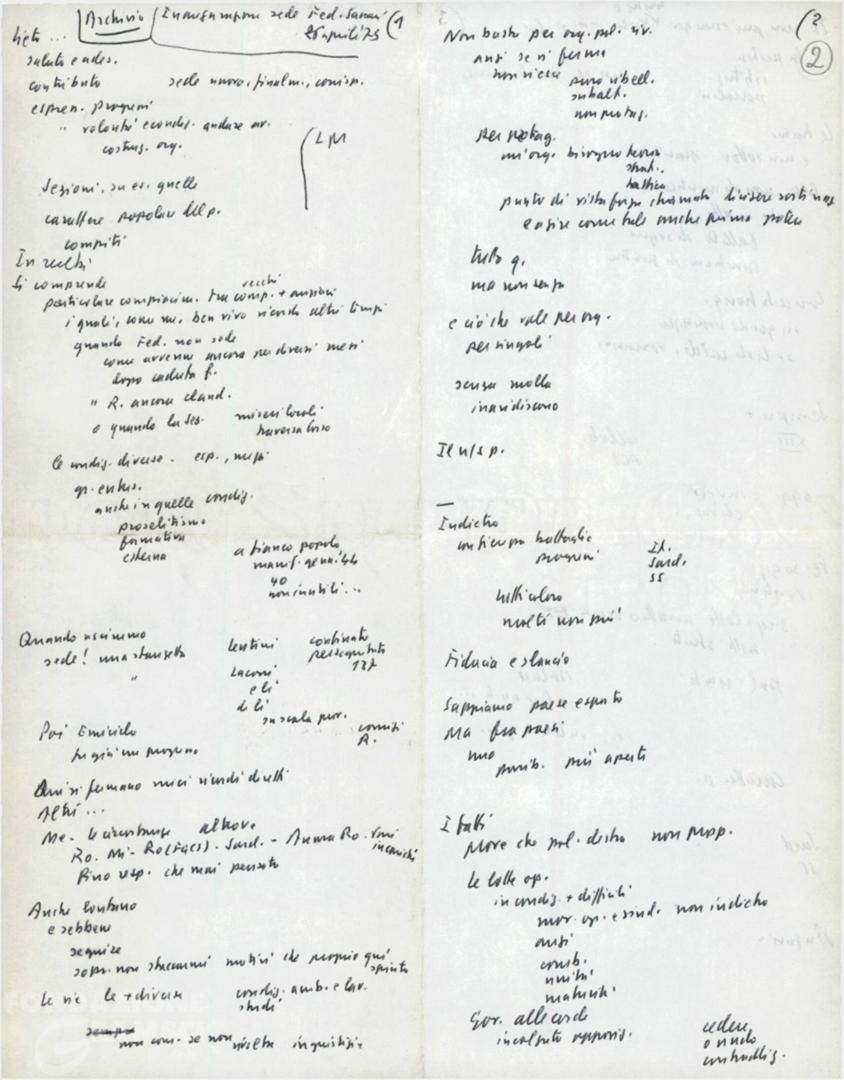 Archivio
Inaugurazione sede Fed. Sassari
25 aprile 75 (1
lieto ...
saluto e ades.
contributo sede nuova, finalm., corrisp.
espres. progressi
" volontà e condiz. andare av.
costruz. org.
LM
Sezioni, su es. quelle
carattere popolare del p.
compiti
In realtà
Si comprende
particolare compiacim. tra comp. + anziani
vecchi
i quali, come me, ben vivo ricordo altri tempi
quando Fed. non sede
come avvenne ancora per diversi mesi
dopo caduta f.
" R. ancora cland.
o quando la sez. miseri locali
le condiz. diverse
gr. entus.
anche in quelle condiz.
proselitismo
formativa
esterna
a fianco popolo
manif. genn. 44
40
non inutili ...
Quando uscimmo
sede! una stanzetta
"
Lentini
Laconi
e lì
di lì
confinato
perseguitato
su scala prov.
Poi Emiciclo
comizi
R.
Qui si fermano miei ricordi diretti
Altri ...
Me - le circostanze altrove
Ro. Mi - Ro (FGCI) - Sard. - Ancora Ro. vari incarichi
Fino resp. che mai pensato
Anche lontano
e sebbene
seguire
sopr. non staccarmi motivi che proprio qui
spinto
Le vie le + diverse
condiz. amb. e lav.
studi
non com. se non rivolta ingiustizie
(2
2
Non basta per org. pol. riv.
anzi se si ferma
non riesce
pura ribell.
subalt.
non protag.
per protag.
un'org. bisogno teoria
strat.
tattica
punto di vista forza chiamata dirigere sorti naz.
e agire come tale anche prima potere
tutto q.
ma non senza
e ciò che vale per org.
per singoli
senza molla
inaridiscono
Il n/s p.
—
Indietro
battaglie
progressi
It.
Sard.
SS
molti non più
Fiducia e slancio
Sappiamo paese esposto
Ma fra paesi
uno
possib. più aperti
I fatti
Prove che pol. destra non prosp.
Le lotte op.
in condiz. + difficili
mov. op. e sind. non indietro
anzi
comb.
unità
maturità
Gov. alle corde
incalzato opposiz.
cedere
o nodo
contraddiz.